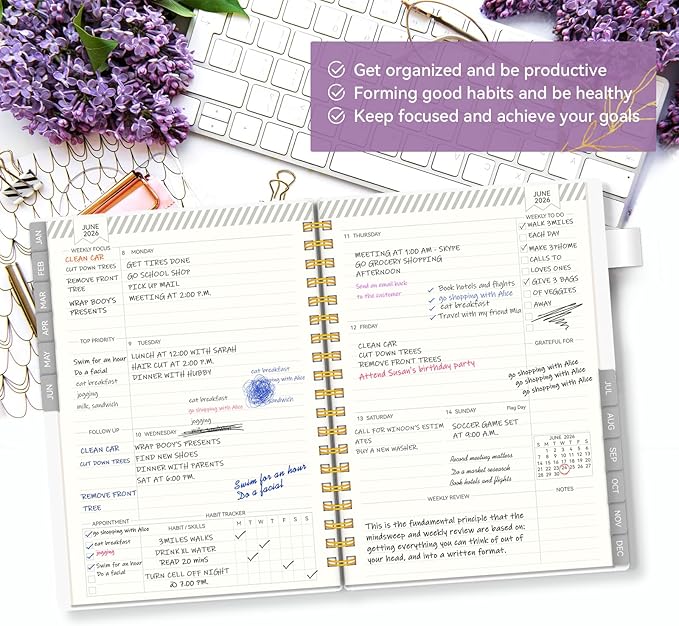 Get organized and be productive
Forming good habits and be healthy
Keep focused and achieve your goals
JAN
FEB
MAR
APR
MAY
JUN
JUNE
2026
WEEKLY FOCUS
CLEAN CAR
CUT DOWN TREES
REMOVE FRONT
TREE
WRAP BOOY'S
PRESENTS
TOP PRIORITY
Swim for an hour
Do a facial
eat breakfast
jogging
milk, sandwich
FOLLOW UP
CLEAN CAR
CUT DOWN TREES
REMOVE FRONT
TREE
8 MONDAY
GET TIRES DONE
GO SCHOOL SHOP
PICK UP MAIL
MEETING AT 2:00 P.M.
9 TUESDAY
LUNCH AT 12:00 WITH SARAH
HAIR CUT AT 2:00 P.M.
DINNER WITH HUBBY
eat breakfast
go shopping with Alice
jogging
eat breakfast
shopping with Alice
sandwich
10 WEDNESDAY
WRAP BOOY'S PRESENTS
FIND NEW SHOES
DINNER WITH PARENTS
SAT AT 6:00 P.M.
Swim for an hour
Do a facial
APPOINTMENT
go shopping with Alice
eat breakfast
jogging
Swim for an hour
Do a facial
HABIT TRACKER
HABIT/SKILLS
M T W T F S S
3 MILES WALKS
DRINK XL WATER
READ 20 MINS
TURN CELL OFF NIGHT
@ 7:00 P.M.
11 THURSDAY
MEETING AT 1:00 AM - SKYPE
GO GROCERY SHOPPING
AFTERNOON
Send an email back
to the customer
Book hotels and flights
go shopping with Alice
eat breakfast
Travel with my friend Mia
12 FRIDAY
CLEAN CAR
CUT DOWN TREES
REMOVE FRONT TREES
Attend Susan's birthday party
13 SATURDAY
CALL FOR WINDOW'S ESTIM
ATES
BUY A NEW WASHER.
14 SUNDAY
Flag Day
SOCCER GAME SET
AT 9:00 A.M.
Record meeting matters
Do a market research
Book hotels and flights
WEEKLY REVIEW
This is the fundamental principle that the
mindsweep and weekly review are based on:
getting everything you can think of out of
your head, and into a written format.
JUNE
2026
WEEKLY TO DO
WALK 3MILES
EACH DAY
MAKE 3?HOME
CALLS TO
LOVES ONES
GIVE 3 BAGS
OF VEGGIES
AWAY
GRATEFUL FOR
go shopping with Alice
go shopping with Alice
go shopping with Alice
JUNE 2026
S M T W T F S
1 2 3 4 5 6
7 8 9 10 11 12 13
14 15 16 17 18 19 20
21 22 23 24 25 26 27
28 29 30
NOTES
JUL
AUG
SEP
OCT
NOV
DEC